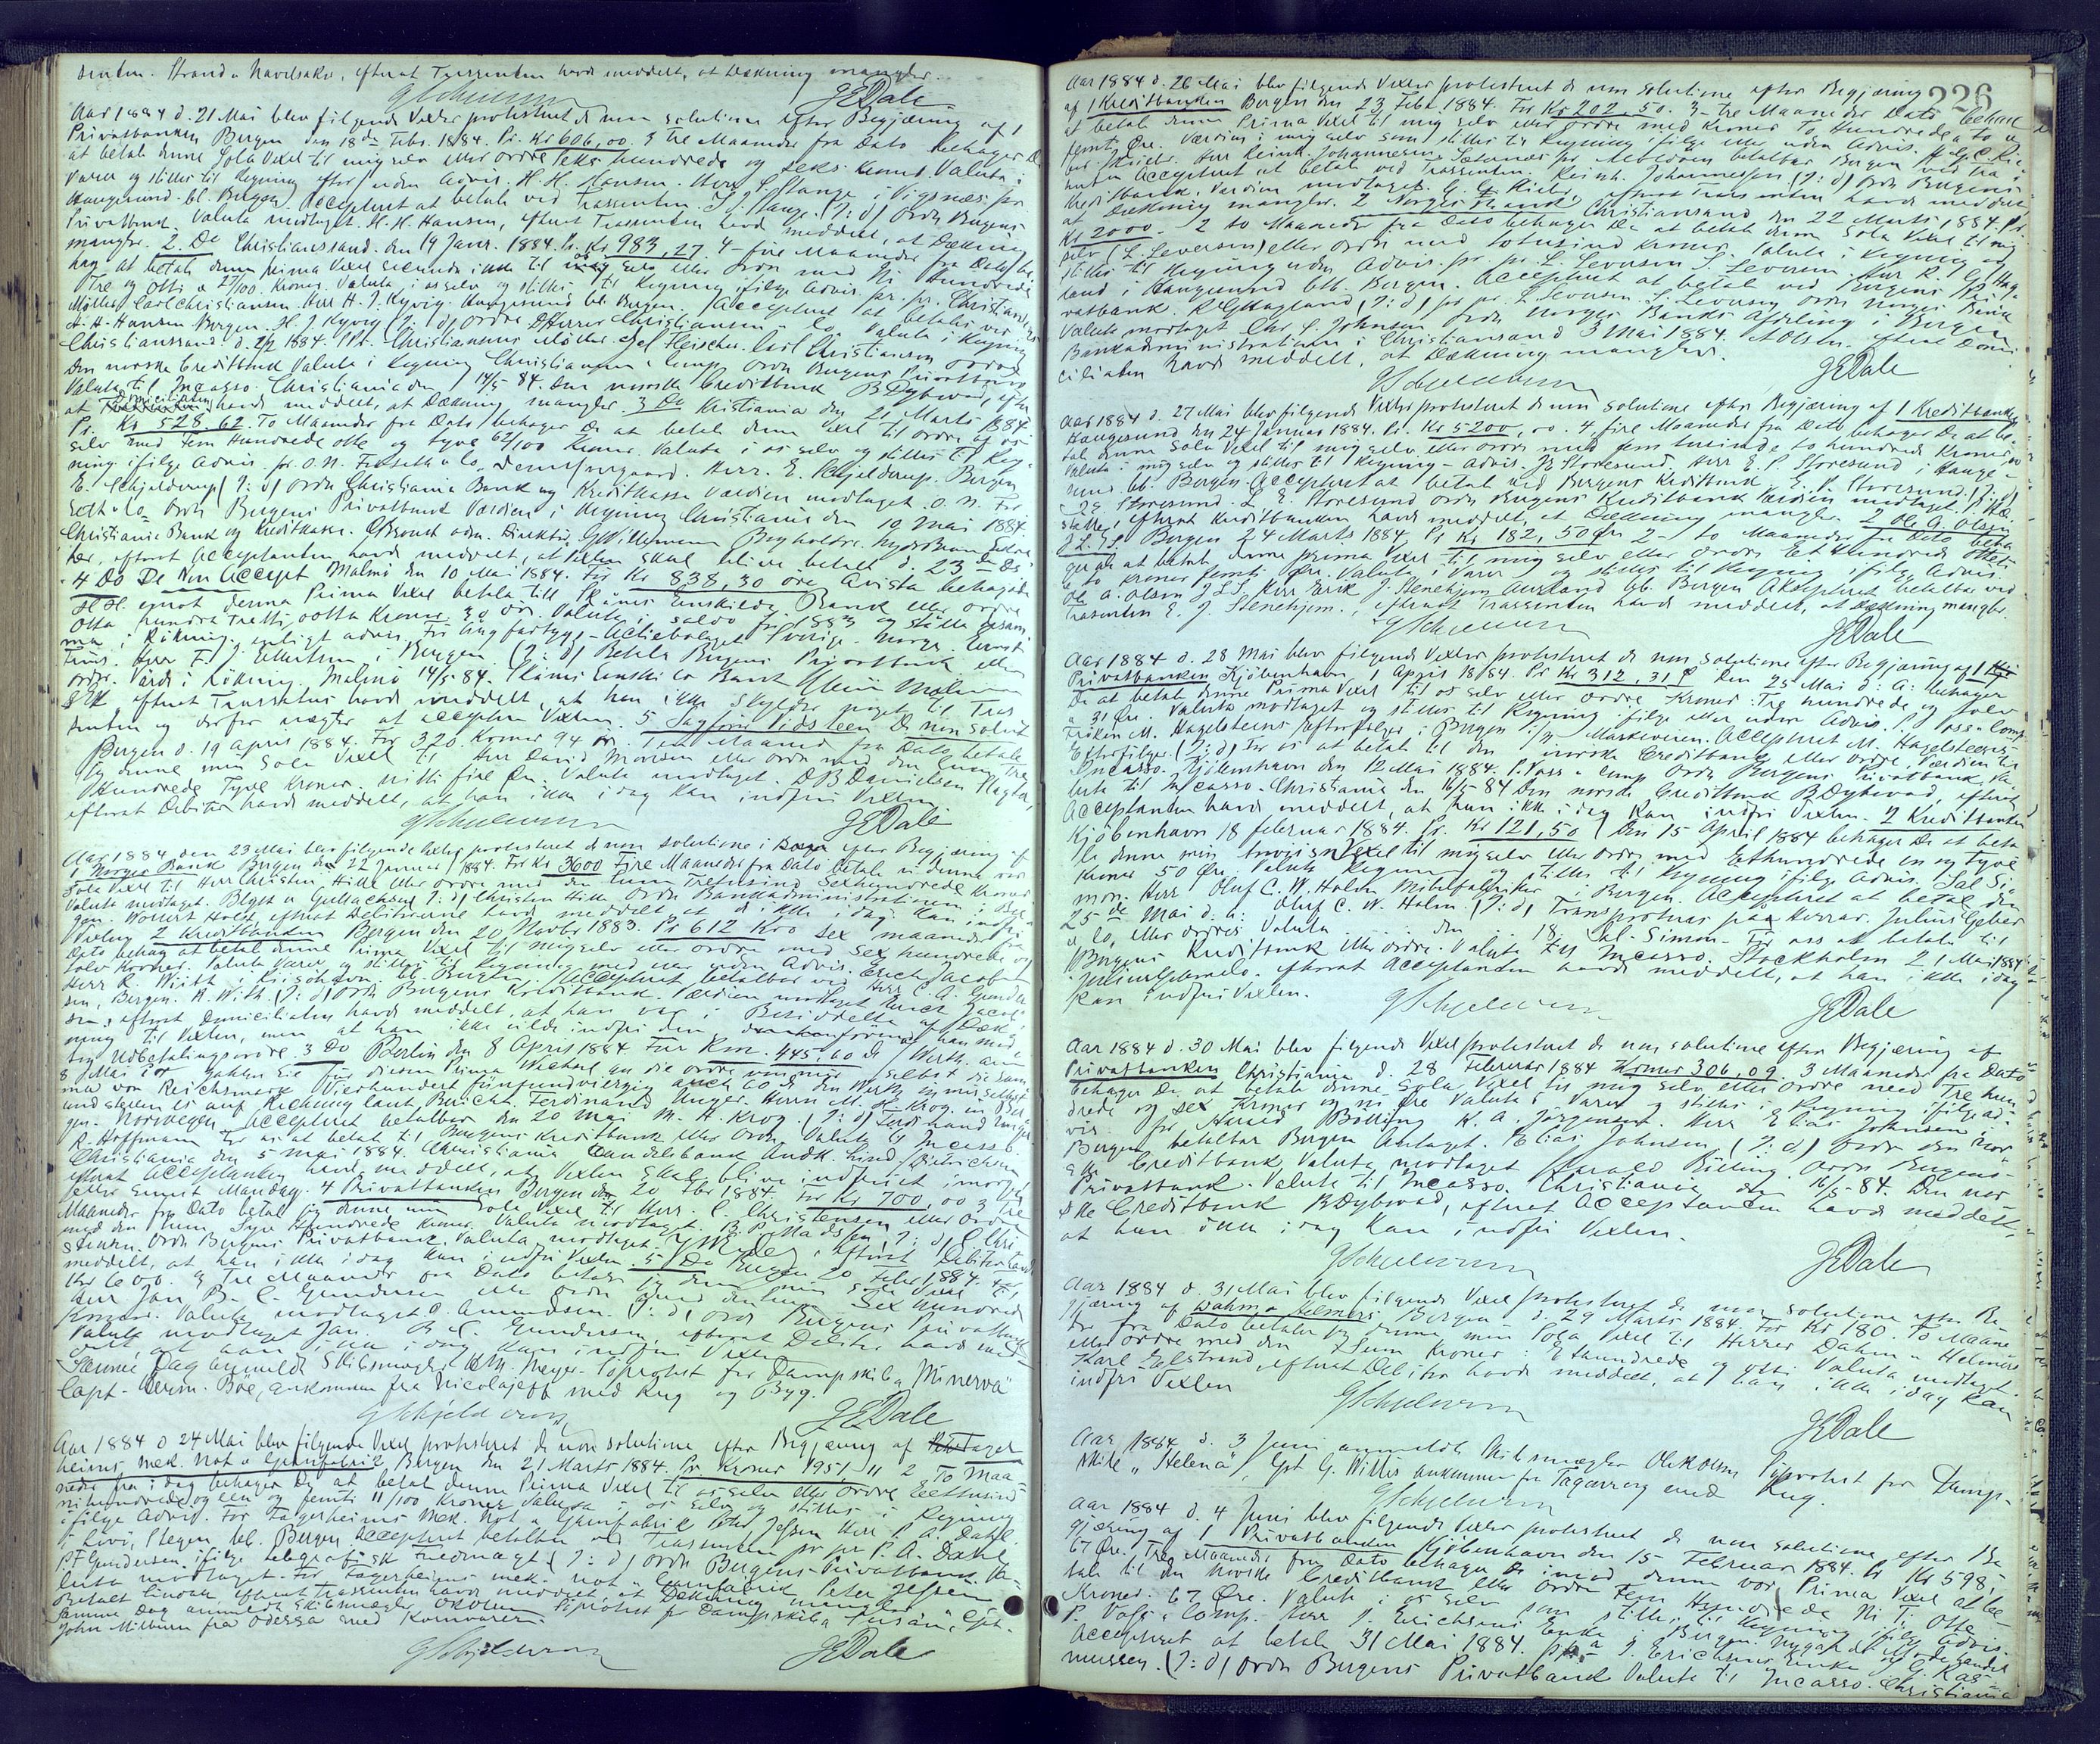 senten. Strand & Havelsaker, efterat Trassenten havde meddelt, at Dækning mangler.
GSchjelderup JEDale
Aar 1884 d. 21 Mai blev følgende Vexler protesteret de non solutione efter Begjæring af 1
Privatbanken Bergen den 18de Febr. 1884. Pr. Kr 606,00. 3 Tre Maaneder fra Dato behager De
at betale denne Sola Vexel til mig selv eller ordre Seks hundrede og seks Kroner. Valuta i
Varer og stilles til Regning efter/uden Advis. H. H. Hansen. Herr S. Stange i Vigsnæs pr
Haugesund bl. Bergen. Accepteret at betale ved Trassenten. S. Stange. (I: d) Ordre Bergens
Privatbank. Valuta modtaget. H. H. Hansen, efterat Trassenten havde meddelt, at Dækning
mangler. 2. Do Christianssand. den 19 Janr. 1884. Pr. Kr 983,27. 4 - fire Maaneder fra Dato be-
hag at betale denne prima Vexel secunda ikke til os selv eller Ordre med Ni Hundrede
Tre og Otti & 27/100. Kroner. Valuta i os selv og stilles til Regning ifølge Advis pr pr. Christiansens
Møller Carl Christiansen. Herr H. J. Kyvig. Haugesund bl. Bergen. Accepteret at betales ved
H. H. Hansen Bergen. H. J. Kyvig (I: d) Ordre DHerrer Christiansen & Co. Valuta i Regning
Christianssand d. 2/2 1884. Carl Christiansen Ordre
den norske Creditbank Valuta i Regning Christiansen & Comp. Ordre Bergens Privatbank
Valuta til Incasso. Christiania den 14/5 84. Den norske Creditbank BDybwad, efter-
at Domiciliaten havde meddelt, at Dækning mangler. 3 Do Kristiania den 21 Marts 1884
Pr. Kr 528.62. To Maaneder fra Dato behager De at betale denne Vexel til ordre af os
selv med Fem Hundrede otte og tyve 62/100 Kroner. Valuta i os selv og stilles til Reg-
ning ifølge Advis. pr. O. N. Herr. E. Schjelderup. Bergen
E. Schjelderup (I: d) Ordre Christiania Bank og Kreditkasse Værdien modtaget. O. N.
& Co. Ordre Bergens Privatbank Værdien i Regning Christiania den 10 Mai 1884.
Christiania Bank og Kreditkasse. adm. Direktør,
efterat Acceptanten havde meddelt, at Vexlen skal blive betalt d. 23de ds
4 Do De Non Accept Malmö den 10 Mai 1884. För Kr 838,30 öre Avista behagade
H H. emot denna Prima Vexel betala till Skånes Enskilda Bank eller ordre
Otta hundra Tretti ootta Kronor 30 öre Valuta i saldo för 1883 og ställa samma
i Räkning enligt advis. För Ångfartygs-Actiebolaget Sverige-Norge. Ernst
Herr F. J. Ellertsen i Bergen. (I: d) Betala Bergens Privatbank eller
ordre. Värdi i Räkning. Malmö 14/5 84. Skånes Enskilda Bank
efterat Trassatus havde meddelt, at han ikke skylder noget til Tras-
senten og derfor nægter at acceptere Vexlen. 5 Sagfører Vidsteen De non solut
Bergen d. 19 April 1884. For 320. Kroner 94 ør. Een Maaned fra Dato betaler
jeg denne min Sola Vexel til Herr David Monsen eller ordre med den Sum Tre
Hundrede Tyve Kroner nitti fire Øre. Valuta modtaget. D B Danielsen
efterat Debitor havde meddelt, at han ikke idag kan indfri Vexlen.
GSchjelderup JEDale
Aar 1884 den 23 Mai blev følgende Vexler protesteret de non solutione efter Begjæring af
1 Norges Bank Bergen den 22 Januar 1884. For Kr 3600 Fire Maaneder fra Dato betale vi denne vor
Sola Vexel til Herr Christen Hille eller ordre med den Sum Tretusind Sexhundrede Kroner
Valuta modtaget. Blyst & Gullachsen (I: d) Christen Hille Ordre Bankadministrationen i Ber-
gen. Wollert Holst, efterat Debitorerne havde meddelt at de ikke i dag kan indfri
Vexlen. 2 Kreditbanken Bergen den 20 Novbr 1883. Pr 612 Kr 00 Sex maaneder fra
Dato behag at betale denne Prima Vexel til mig selv eller ordre med Sex hundrede og
tolv Kroner. Valuta Varer og stilles til Regning med eller uden Advis. Erich Jacob-
Herr R. With i Kiöbhavn bl. Bergen. Accepteret betalbar ved Herr C. A. Gunder-
sen, Bergen. R. With. (I: d) Ordre Bergens Kreditbank. Værdien modtaget Erich Jacob-
sen, efterat Domiciliaten havde meddelt, at han var i Besiddelse af Dæk-
ning til Vexlen, men at han ikke vilde indfri den,
Udbetalingsordre. 3 Do Berlin den 8 April 1884 Für Rm. 445.60 d.
8 Mai zahlen Sie für diesen Prima Wechsel an die Ordre von mir selbst die Sum-
me von Reichsmark Vierhundert fünfundvierzig auch 60 d. den Werth in mir selbst
und stellen es auf Rechnung laut Bericht. Ferdinand Unger. Herrn M. H. Krog. in Ber-
gen. Norwegen, Accepteret betalbar den 20 Mai M. H. Krog (I: d) Ferdinand Unger
R. Hoffmann For os at betale til Bergens Kreditbank eller Ordre. Valuta til Incasso.
Christiania den 5 Mai 1884. Christiania Handelsbank
efterat Acceptanten havde meddelt, at Vexlen skal blive indfriet imorgen
eller Mandag. 4 Privatbanken Bergen den 20 Fbr 1884. For Kr 700,00 3 Tre
Maaneder fra Dato betaler jeg denne min Sola Vexel til Herr. C. Christensen eller Ordre
med den Sum Syv Hundrede Kroner. Valuta modtaget. B. P. Madssen, (I: d) C Chri-
stensen. Ordre Bergens Privatbank, Valuta modtaget. efterat Debitor havde
meddelt, at han ikke idag kan indfri Vexlen. 5 Do Bergen 20 Febr 1884. For
Kr 600. 3 Tre Maaneder fra Dato betaler jeg denne min Sola Vexel til
Herr Jan B. C. Gundersen eller ordre med den Sum Sex Hundrede
Kroner. Valuta modtaget O. Amundsen. (I: d) Ordre Bergens Privatbank
Valuta modtaget Jan. B. C. Gundersen, efterat Debitor havde med-
delt, at han ikke idag kan indfri Vexlen.
Samme Dag anmeldte Skibsmægler Meyer Søprotest for Dampskib „Minerva"
Capt. Herm. Böe, ankommen fra Nicolajeff med Rug og Byg.
GSchjelderup JEDale
Aar 1884 d 24 Mai blev følgende Vexel protesteret de non solutione efter Begjæring af Fager-
heims mek. Not & Garnfabrik Bergen den 21 Marts 1884. Pr Kroner 1951,11 2 To Maa-
neder fra i dag behager De at betale denne Prima Vexel til os selv eller Ordre Eettusind
nihundrede og een og femti 11/100 Kroner Valuta i os selv og stilles i Regning
ifølge Advis. For Fagerheims mek. Not & Garnfabrik Peter Jessen Herr P. A. Dahl.
i Lovö, Stegen bl. Bergen Accepteret betalbar ved Trassenten pr pr P. A. Dahl
P F Gundersen ifølge telegrafisk Fuldmagt (I: d) Ordre Bergens Privatbank Va-
luta modtaget. For Fagerheims mek. not & Garnfabrik Peter Jessen
efterat Trassenten havde meddelt, at Dækning mangler.
Samme Dag anmeldte Skibsmægler OKOlsen Søprotest for Dampskib Cpt.
John Milburn fra Odessa med Kornvarer.
GSchjelderup JEDale
226
Aar 1884 d. 26 Mai blev følgende Vexler protesteret de non solutione efter Begjæring
af 1 Kreditbanken Bergen den 23 Febr 1884. For Kr 202,50. 3 - Tre Maaneder Dato behag
at betale denne Prima Vexel til mig selv eller ordre med Kroner To Hundrede & to &
femti Øre. Værdien i mig selv som stilles til Regning ifølge eller uden Advis. H. G. C. Rie-
ber Herr Reinh. Johannesen, Sæternes pr bl. Bergen ved Tra-
senten Accepteret at betale ved Trassenten. Reinh. Johannessen (I: d) Ordre Bergens
Kreditbank. Værdien modtaget. G. C. Rieber, efterat Trassenten havde meddelt
at Dækning mangler. 2 Norges Bank Christianssand den 22 Marts 1884. Pr.
Kr 2000. - 2 to Maaneder fra Dato behager De at betale denne Sola Vexel til mig
selv (L. Levorsen) eller Ordre med totusind Kroner. Valuta i Regning og
stilles til Regning uden Advis. pr. pr. L. Levorsen S. Levorsen. Herr R. G. Hag-
land i Haugesund bl. Bergen. Accepteret at betale ved Bergens Pri-
vatbank. R G Hagland (I: d) pr pr. L Levorsen. S. Levorsen Ordre Norges Bank
Valuta modtaget Chr. S. Johnsen Ordre Norges Banks Afdeling i Bergen
Bankadministrationen i Christiansand 3 Mai 1884. AOlsen. efterat Domi-
ciliaten havde meddelt, at Dækning mangler.
GSchjelderup JEDale
Aar 1884 d. 27 Mai blev følgende Vexler protesteret de non solutione efter Begjæring af 1 Kreditbanken
Haugesund den 24 Januar 1884. Pr. Kr 5200,00. 4 fire Maaneder fra Dato behager De at be-
tale denne Sola Vexel til mig selv eller Ordre med fem tusinde to hundrede Kroner
Valuta i mig selv og stilles til Regning - Advis. Storesund. Herr E. P. Storesund i Hauge-
sund bl. Bergen. Accepteret at betale ved Bergens Kreditbank. E. P. Storesund (I: d)
Storesund. L. E. Storesund Ordre Bergens Kreditbank Værdien modtaget.
efterat Kreditbanken havde meddelt, at Dækning mangler. 2 Ole A. Olsen
Bergen 24 Marts 1884, Pr Kr 182,50 Ør 2 - to Maaneder fra Dato beha-
ger De at betale denne prima Vexel til mig selv eller Ordre Et Hundrede Otteti
& to Kroner Femti Øre. Valuta i Varer og stilles til Regning ifølge Advis.
Ole A. Olsen Herr Erik J. Stenehjem Aurland bl. Bergen Accepteret betalbar ved
Trasenten E. J. Stenehjem., efterat Trassenten havde meddelt, at Dækning mangler.
GSchjelderup JEDale
Aar 1884 d. 28 Mai blev følgende Vexler protesteret de non solutione efter Begjæring af 1
Privatbanken Kjöbenhavn 1 April 1884. Pr Kr 312,31 Den 25 Mai d: A: behager
De at betale denne Prima Vexel til os selv eller ordre Kroner Tre hundrede og tolv
& 31 Øre. Valuta modtaget og stilles til Regning ifølge eller uden Advis. P. Voss & Comp.
M. Hagelsteens Efterfølger i Bergen Markeveien. Accepteret M. Hagelsteens
Efterfølger. (I: d) For os at betale til den norske Creditbank eller ordre Værdien til
Incasso. Kjöbenhavn den 12 Mai 1884. P. Voss & comp Ordre Bergens Privatbank, Va-
luta til Incasso. Christiania den 16/5 84 Den norske Creditbank BDybwad, efterat
Acceptanten havde meddelt, at han ikke i dag kan indfri Vexlen. 2 Kreditbanken
Kjöbenhavn 18 februar 1884. Pr. Kr 121,50 Den 15 April 1884 behager De at beta-
le denne min Vexel til mig selv eller ordre med Ethundrede en og tyve
Kroner 50 Øre. Valuta i Regning og stilles til Regning ifølge advis. Sal. Si-
mon. Herr Oluf C. W. Holm Möbelfabriker i Bergen. Accepteret at betale den
25de Mai d. A: Oluf C. W. Holm. (I: d) Transporteres paa Herrar. Julius Geber
& Co, eller ordre Valuta den 18 Sal. Simon. For oss at betala til
Bergens Kreditbank eller ordre. Valuta till Incasso. Stockholm 21 Mai 1884
Julius Geber & Co. efterat Acceptanten havde meddelt, at han ikke idag
kan indfri Vexlen.
GSchjelderup JEDale
Aar 1884 d. 30 Mai blev følgende Vexel protesteret de non solutione efter Begjæring af
Privatbanken Christiania d. 28 Februar 1884 Kroner 306,09. 3 Maaneder fra Dato
behager De at betale denne Sola Vexel til mig selv eller ordre med Tre hun-
drede og sex Kroner og ni Øre Valuta i Varer og stilles i Regning ifølge ad-
vis. pr Harald Bölling K. A. Jørgensen. Herr Elias Johnsen i
Bergen betalbar Bergen Antaget. Elias Johnsen (I: d) Ordre den nor-
ske Creditbank Valuta modtaget Harald Bölling. Ordre Bergens
Privatbank. Valuta til Incasso. Christiania den 16/5 84. Den nor-
ske Creditbank BDybwad, efterat Acceptanten havde meddelt,
at han ikke idag kan indfri Vexlen.
GSchjelderup JEDale
Aar 1884 d. 31 Mai blev følgende Vexel protesteret de non solutione efter Be-
gjæring af Dahm & Helmers Bergen d. 29 Marts 1884. For Kr 180. To Maane-
der fra Dato betaler jeg denne min Sola Vexel til Herrer Dahm & Helmers
eller ordre med den Sum Kroner Ethundrede og otti Valuta modtaget.
Karl Ealstrand, efterat Debitor havde meddelt, at han ikke idag kan
indfri Vexlen
GSchjelderup JEDale
Aar 1884 d. 3 Juni anmeldte Skibsmægler Ole K Olsen Søprotest for Damp-
skib „Helena", Cpt G. Willis ankommen fra Taganrog med Rug.
GSchjelderup
Aar 1884 d. 4 Juni blev følgende Vexler protesteret de non solutione efter Be-
gjæring af 1 Privatbanken Kjöbenhavn den 15 Februar 1884. Pr Kr 598,
67 Øre. Tre Maaneder fra Dato behager De imod denne vor Prima Vexel at be-
tale til den norske Creditbank eller ordre Fem Hundrede Ni Ti Otte
Kroner. 67 Øre. Valuta i os selv som stilles til Regning ifølge Advis.
P. Voss & Comp. Herr J. Erichsens Enke i Bergen.
Accepteret at betale 31 Mai 1884. J. Erichsens Enke G. Ras-
mussen. (I: d) Ordre Bergens Privatbank Valuta til Incasso. Christiania